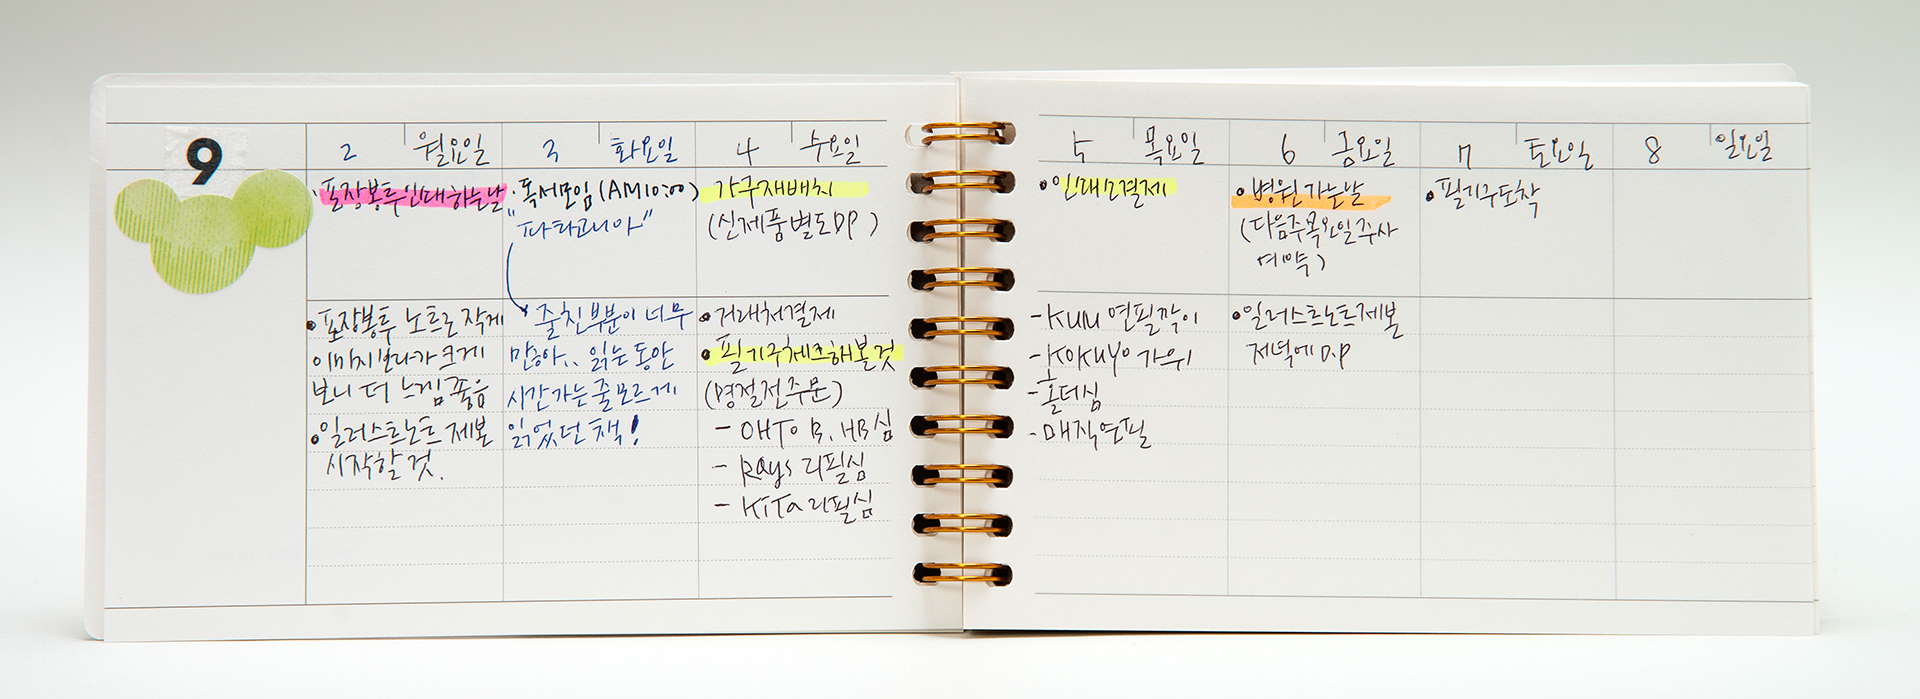 9
2 월요일
· 포장봉투인쇄하는날
• 포장봉투 노트로 작게
이미지보다가 크게
보니 더 느낌 좋음
• 일러스트노트 제본
시작할 것.
3 화요일
· 독서모임 (AM10:00)
"파타고니아"
* 줄친부분이 너무
많아.. 읽는 동안
시간가는 줄 모르게
읽었던 책!
4 수요일
가구재배치
(신제품 별도 DP)
• 거래처결제
• 필기구체크해볼것
(명절전주문)
- OHTO B, HB심
- Rays 리필심
- KiTa 리필심
5 목요일
• 인쇄소결제
- KUM 연필깎이
- KOKUYO 가위
- 홀더심
- 매직연필
6 금요일
• 병원가는날
(다음주목요일주사
예약)
• 일러스트노트제본
저녁에 D.P
7 토요일
• 필기구도착
8 일요일